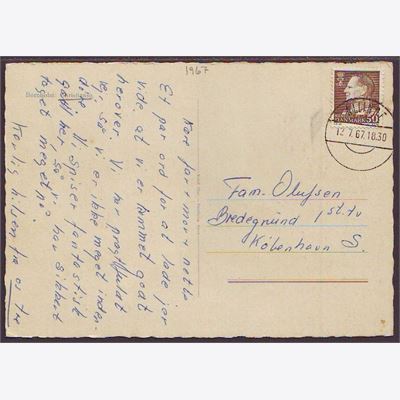 1967
Bornholm. Christiansø
Kære far mor + nette
Et par ord for at lade jer
vide at vi er kommet godt
herover. Vi har pragtfuldt
vejr, så vi er ikke meget inden-
dørs. Vi spiser fantastisk
godt her så vi har sikkert
taget meget på.
Kærlig hilsen fra os tre
DANMARK 50
12.7.67.18.30
Fam. Olufsen
Bredegrund 1 st. tv
København S.